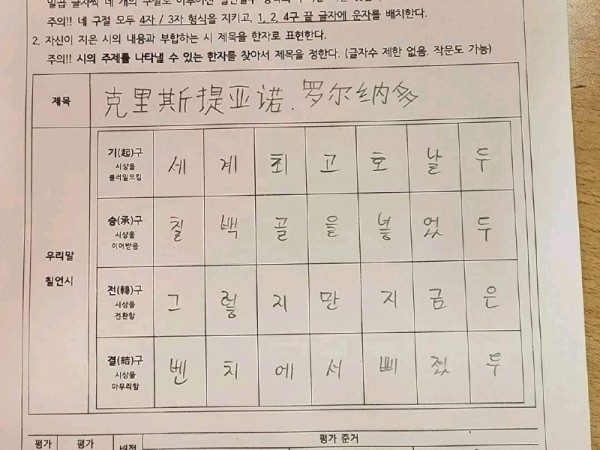 주의!! 네 구절 모두 4자 / 3자 형식을 지키고, 1, 2, 4구 끝 글자에 운자를 배치한다.
2. 자신이 지은 시의 내용과 부합하는 시 제목을 한자로 표현한다.
주의!! 시의 주제를 나타낼 수 있는 한자를 찾아서 제목을 정한다. (글자수 제한 없음. 작문도 가능)
제목 克里斯提亚诺.罗尔纳多
우리말 칠언시
기(起)구 시상을 불러일으킴 세 계 최 고 호 날 두
승(承)구 시상을 이어받음 칠 백 골 을 넣 었 두
전(轉)구 시상을 전환함 그 렇 지 만 지 금 은
결(結)구 시상을 마무리함 벤 치 에 서 삐 졌 두
평가 평가 배점 평가 준거